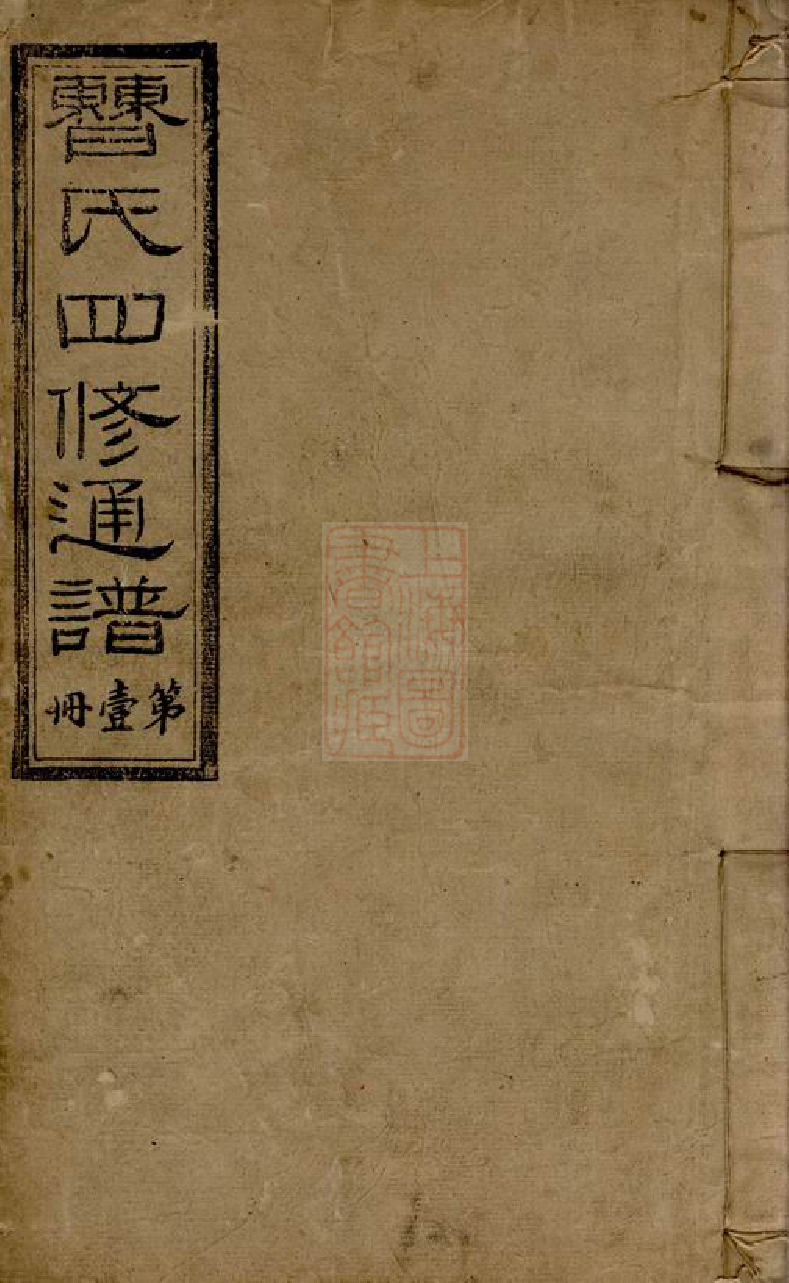 𣍘氏四修通譜
第壹冊
上海圖
書館藏